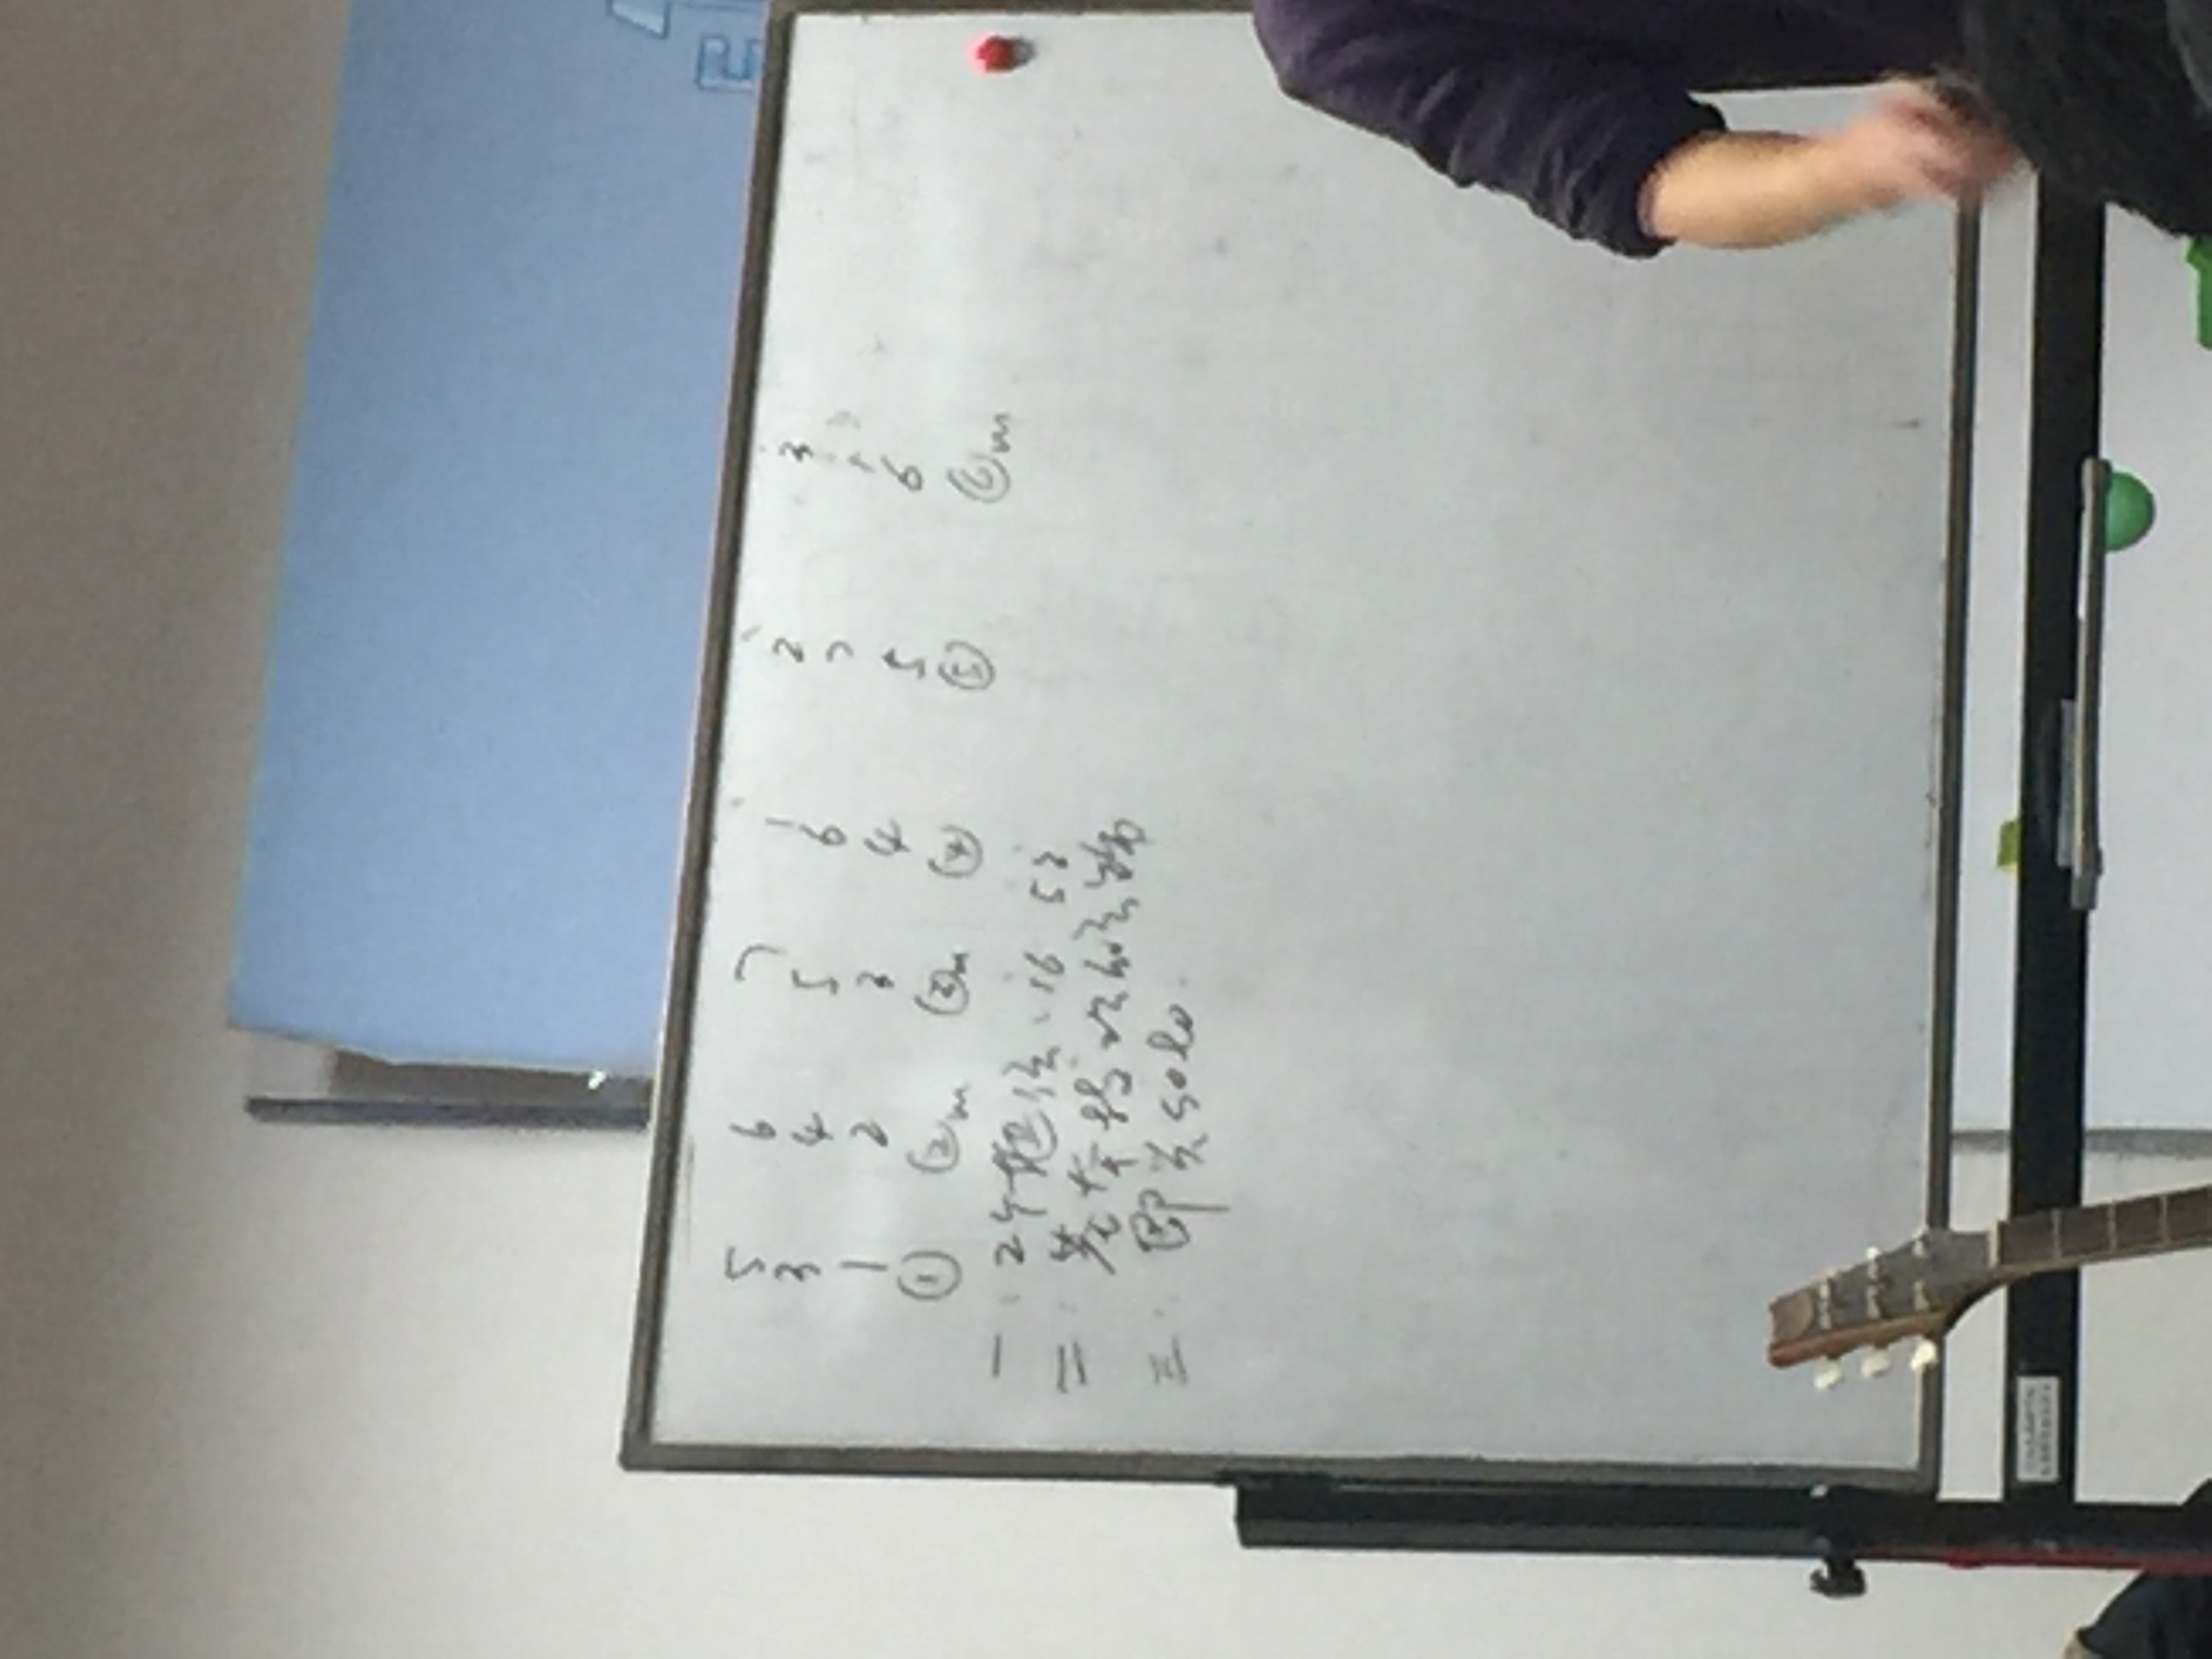 5 6 7 1 2 3
3 4 5 6 7 1
1 2 3 4 5 6
① ②m ③m ④ ⑤ ⑥m
一: 2个把位
二: 基本
三: 即兴solo.
E